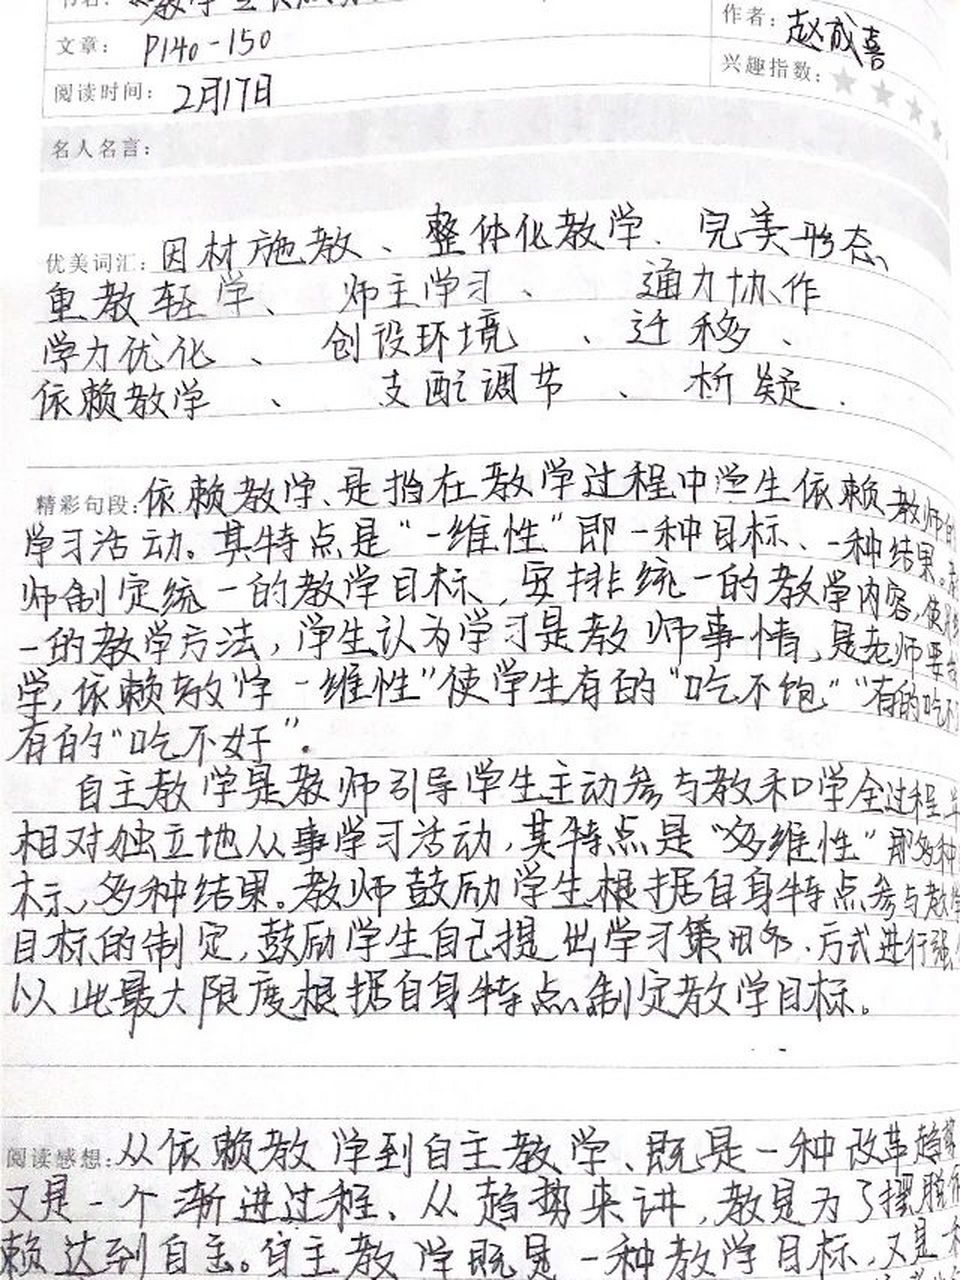 书名：
作者：赵成喜
文章：P140-150
兴趣指数：
阅读时间：2月17日
名人名言：
优美词汇：因材施教、整体化教学、完美形态、
重教轻学、师主学习、通力协作
学力优化、创设环境、迁移、
依赖教学、支配调节、析疑.
精彩句段：依赖教学、是指在教学过程中学生依赖教师的
学习活动。其特点是“一维性”即一种目标、一种结果。
师制定统一的教学目标、安排统一的教学内容，使用
一的教学方法，学生认为学习是教师事情，是老师要
学，依赖教学一维性”使学生有的“吃不饱”“有的吃不
有的“吃不好”.
自主教学是教师引导学生主动参与教和学全过程
相对独立地从事学习活动，其特点是“多维性”那多种
标、多种结果。教师鼓励学生根据自身特点参与教学
目标的制定，鼓励学生自己提出学习策略、方式进行
以此最大限度根据自身特点制定教学目标。
阅读感想：从依赖教学到自主教学、既是一种改革趋
又是一个渐进过程、从趋势来讲，教是为了摆脱
赖达到自主。自主教学既是一种教学目标，又是